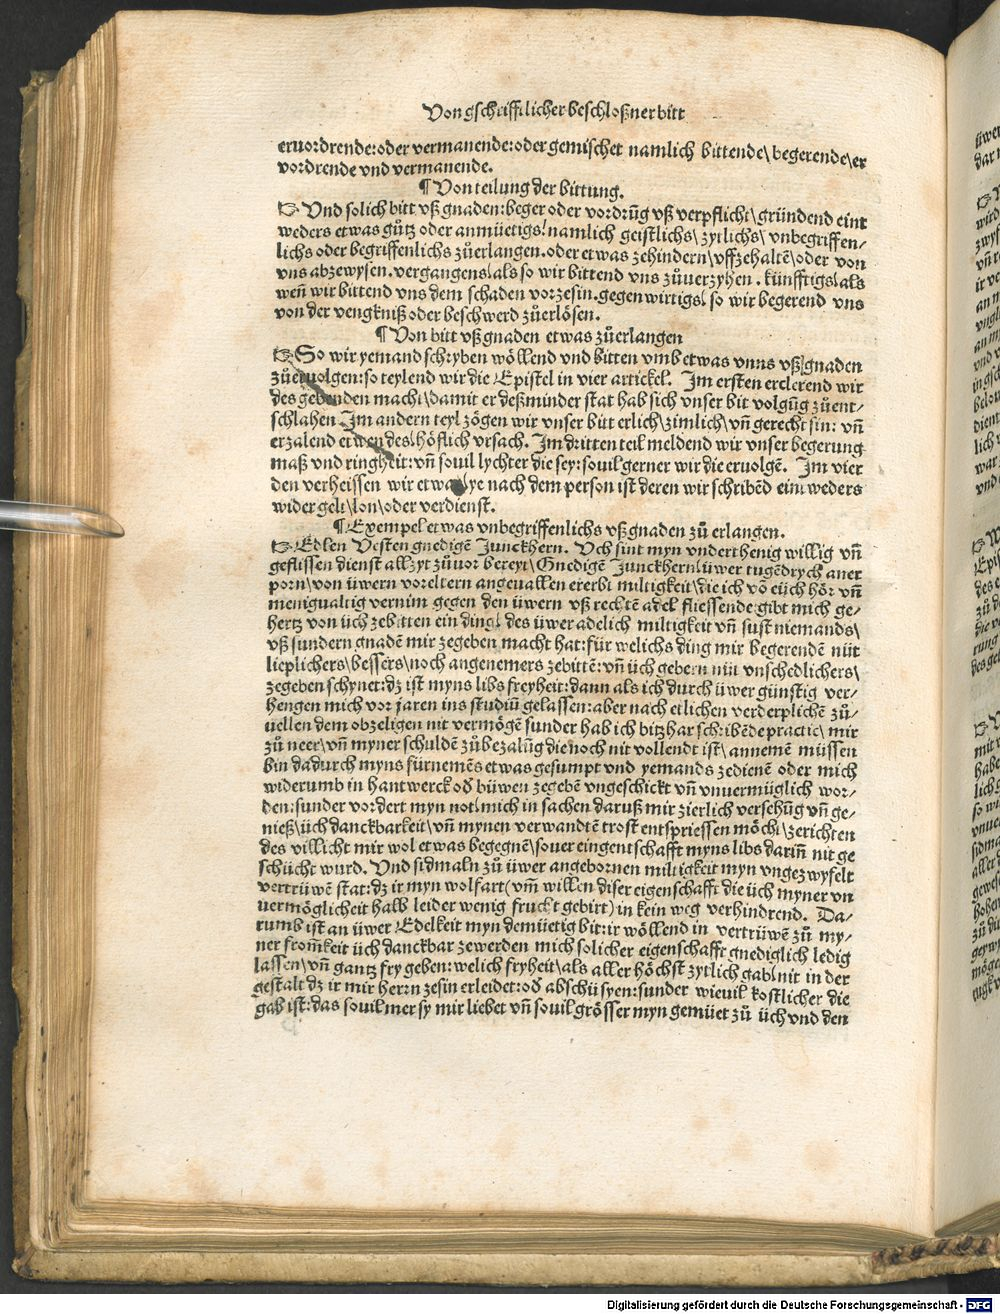 Von gschrifftlicher beschloßner bitt
eruordrende: oder vermanende: oder gemischet namlich bittende\ begerende\ er
vordrende vnd vermanende.
¶ Von teilung der bittung.
☞ Vnd solich bitt vß gnaden: beger oder vordrūg vß verpflicht\ gründend eint
weders etwas gůtz oder anmüetigs\ namlich geistlichs\ zytlichs\ vnbegriffen/
lichs oder begriffenlichs zůerlangen. oder etwas zehindern\ vffzehaltē\ oder von
vns abzewysen. vergangens\ als so wir bittend vns zůuerzyhen. künfftigs\ als
weñ wir bittend vns dem schaden vorzesin. gegenwirtigs\ so wir begerend vns
von der vengkniß oder beschwerd zůerlösen.
¶ Von bitt vß gnaden etwas zůerlangen
☞ So wir yemand schryben wöllend vnd bitten vmb etwas vnns vß gnaden
zůeruolgen: so teylend wir die Epistel in vier artickel. Im ersten erclerend wir
des gebenden macht\ damit er deßminder stat hab sich vnser bit volgūg zůent-
schlahen. Im andern teyl zögen wir vnser bitt erlich\ zimlich\ vñ gerecht sin: vñ
erzalend etwen des höflich vrsach. Im dritten teil meldend wir vnser begerung
maß vnd ringheit: vñ souil lychter die sey: souil gerner wir die eruolgē. Im vier
den verheissen wir etwas\ ye nach dem person ist deren wir schribēd eintweders
wider gelt\ lon\ oder verdienst.
¶ Exempel etwas vnbegriffenlichs vß gnaden zů erlangen.
☞ Edlen Vesten gnedigē Junckhern. Vch sint myn vnderthenig willig vñ
geflissen dienst allzyt zůuor bereyt\ Gnedigē Junckhern\ üwer tugēdrych aner
porn\ von üwern voreltern angeuallen ererbt miltigkeit\ die ich võ eüch hör vñ
menigualtig vernim gegen den üwern vß rechtē adel fliessende gibt mich ge/
hertz von üch zebitten ein ding\ des üwer adelich miltigkeit vñ sust niemands\
vß sundern gnadē mir zegeben macht hat: für welichs ding mir begerendē nüt
lieplichers\ bessers\ noch angenemers zebittē: vñ üch gebern nüt vnschedlichers\
zegeben schynet: dz ist myns libs freyheit: dann als ich durch üwer günstig ver/
hengen mich vor jaren ins studiū gelassen: aber nach etlichen verderplichē zů/
uellen dem obzeligen nit vermögē sunder hab ich bitzhar schribēde practic\ mir
zů neer\ vñ myner schuldē zůbezalūg die noch nit vollendt ist\ annemē müssen
bin dadurch myns fürnemēs etwas gesumpt vnd yemands zedienē oder mich
widerumb in hantwerck oď büwen zegebē vngeschickt vñ vnuermüglich wor/
den: sunder vordert myn not\ mich in sachen daruß mir zierlich versehūg vñ ge/
nieß\ üch danckbarkeit\ vñ mynen verwandtē trost entspriessen möcht\ zerichten
des villicht mir wol etwas begegnē\ souer eingentschafft myns libs dariñ nit ge
schücht wurd. Vnd sidmaln zů üwer angebornen miltigkeit myn vngezwyfelt
vertrüwē stat: dz ir myn wolfart (vm̃ willen diser eigenschafft die üch myner vn
uermöglicheit halb leider wenig frucht gebirt) in kein weg verhindrend. Da/
rumb ist an üwer Edelkeit myn demüetig bit: ir wöllend in vertrüwē zů my/
ner from̄keit üch danckbar zewerden mich solicher eigenschafft gnediglich ledig
lassen\ vñ gantz fry geben: welich fryheit\ als aller höchst zytlich gab\ nit in der
gestalt dz ir mir herrn zesin erleidet: oď abschü syen: sunder wieuil kostlicher die
gab ist: das souil mer sy mir liebet vñ souil grösser myn gemüet zů üch vnd den
Digitalisierung gefördert durch die Deutsche Forschungsgemeinschaft - DFG